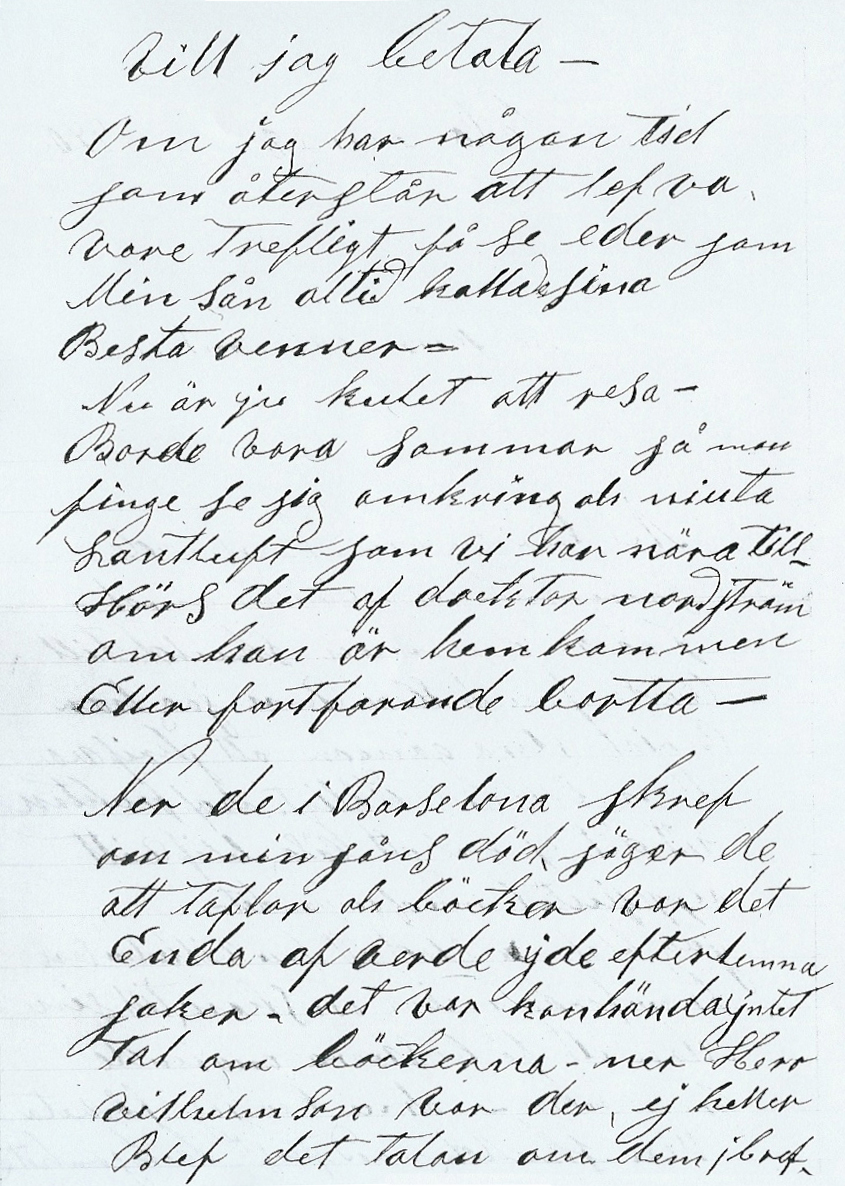 vill jag betala —
Om jag har någon tid
som återstår att lefva,
vore trefligt få se eder som
Min sån altid kallade sina
Besta venner =
Nu är ju kulet att resa —
Borde vara sommar så man
finge se sig omkring och niuta
Lantluft som vi har nära till —
Hörs det af docktor nordström
om han är hemkommen
Eller fortfarande bortta —
Ner de i Barselona skref
om min sons död, säger de
att taflor och böcker var det
Enda af verde i de efterlemna
saker - det var kanhända intet
tal om böckerna - ner Herr
vilhelmson var der, ej heller
Blef det talan om dem i bref.